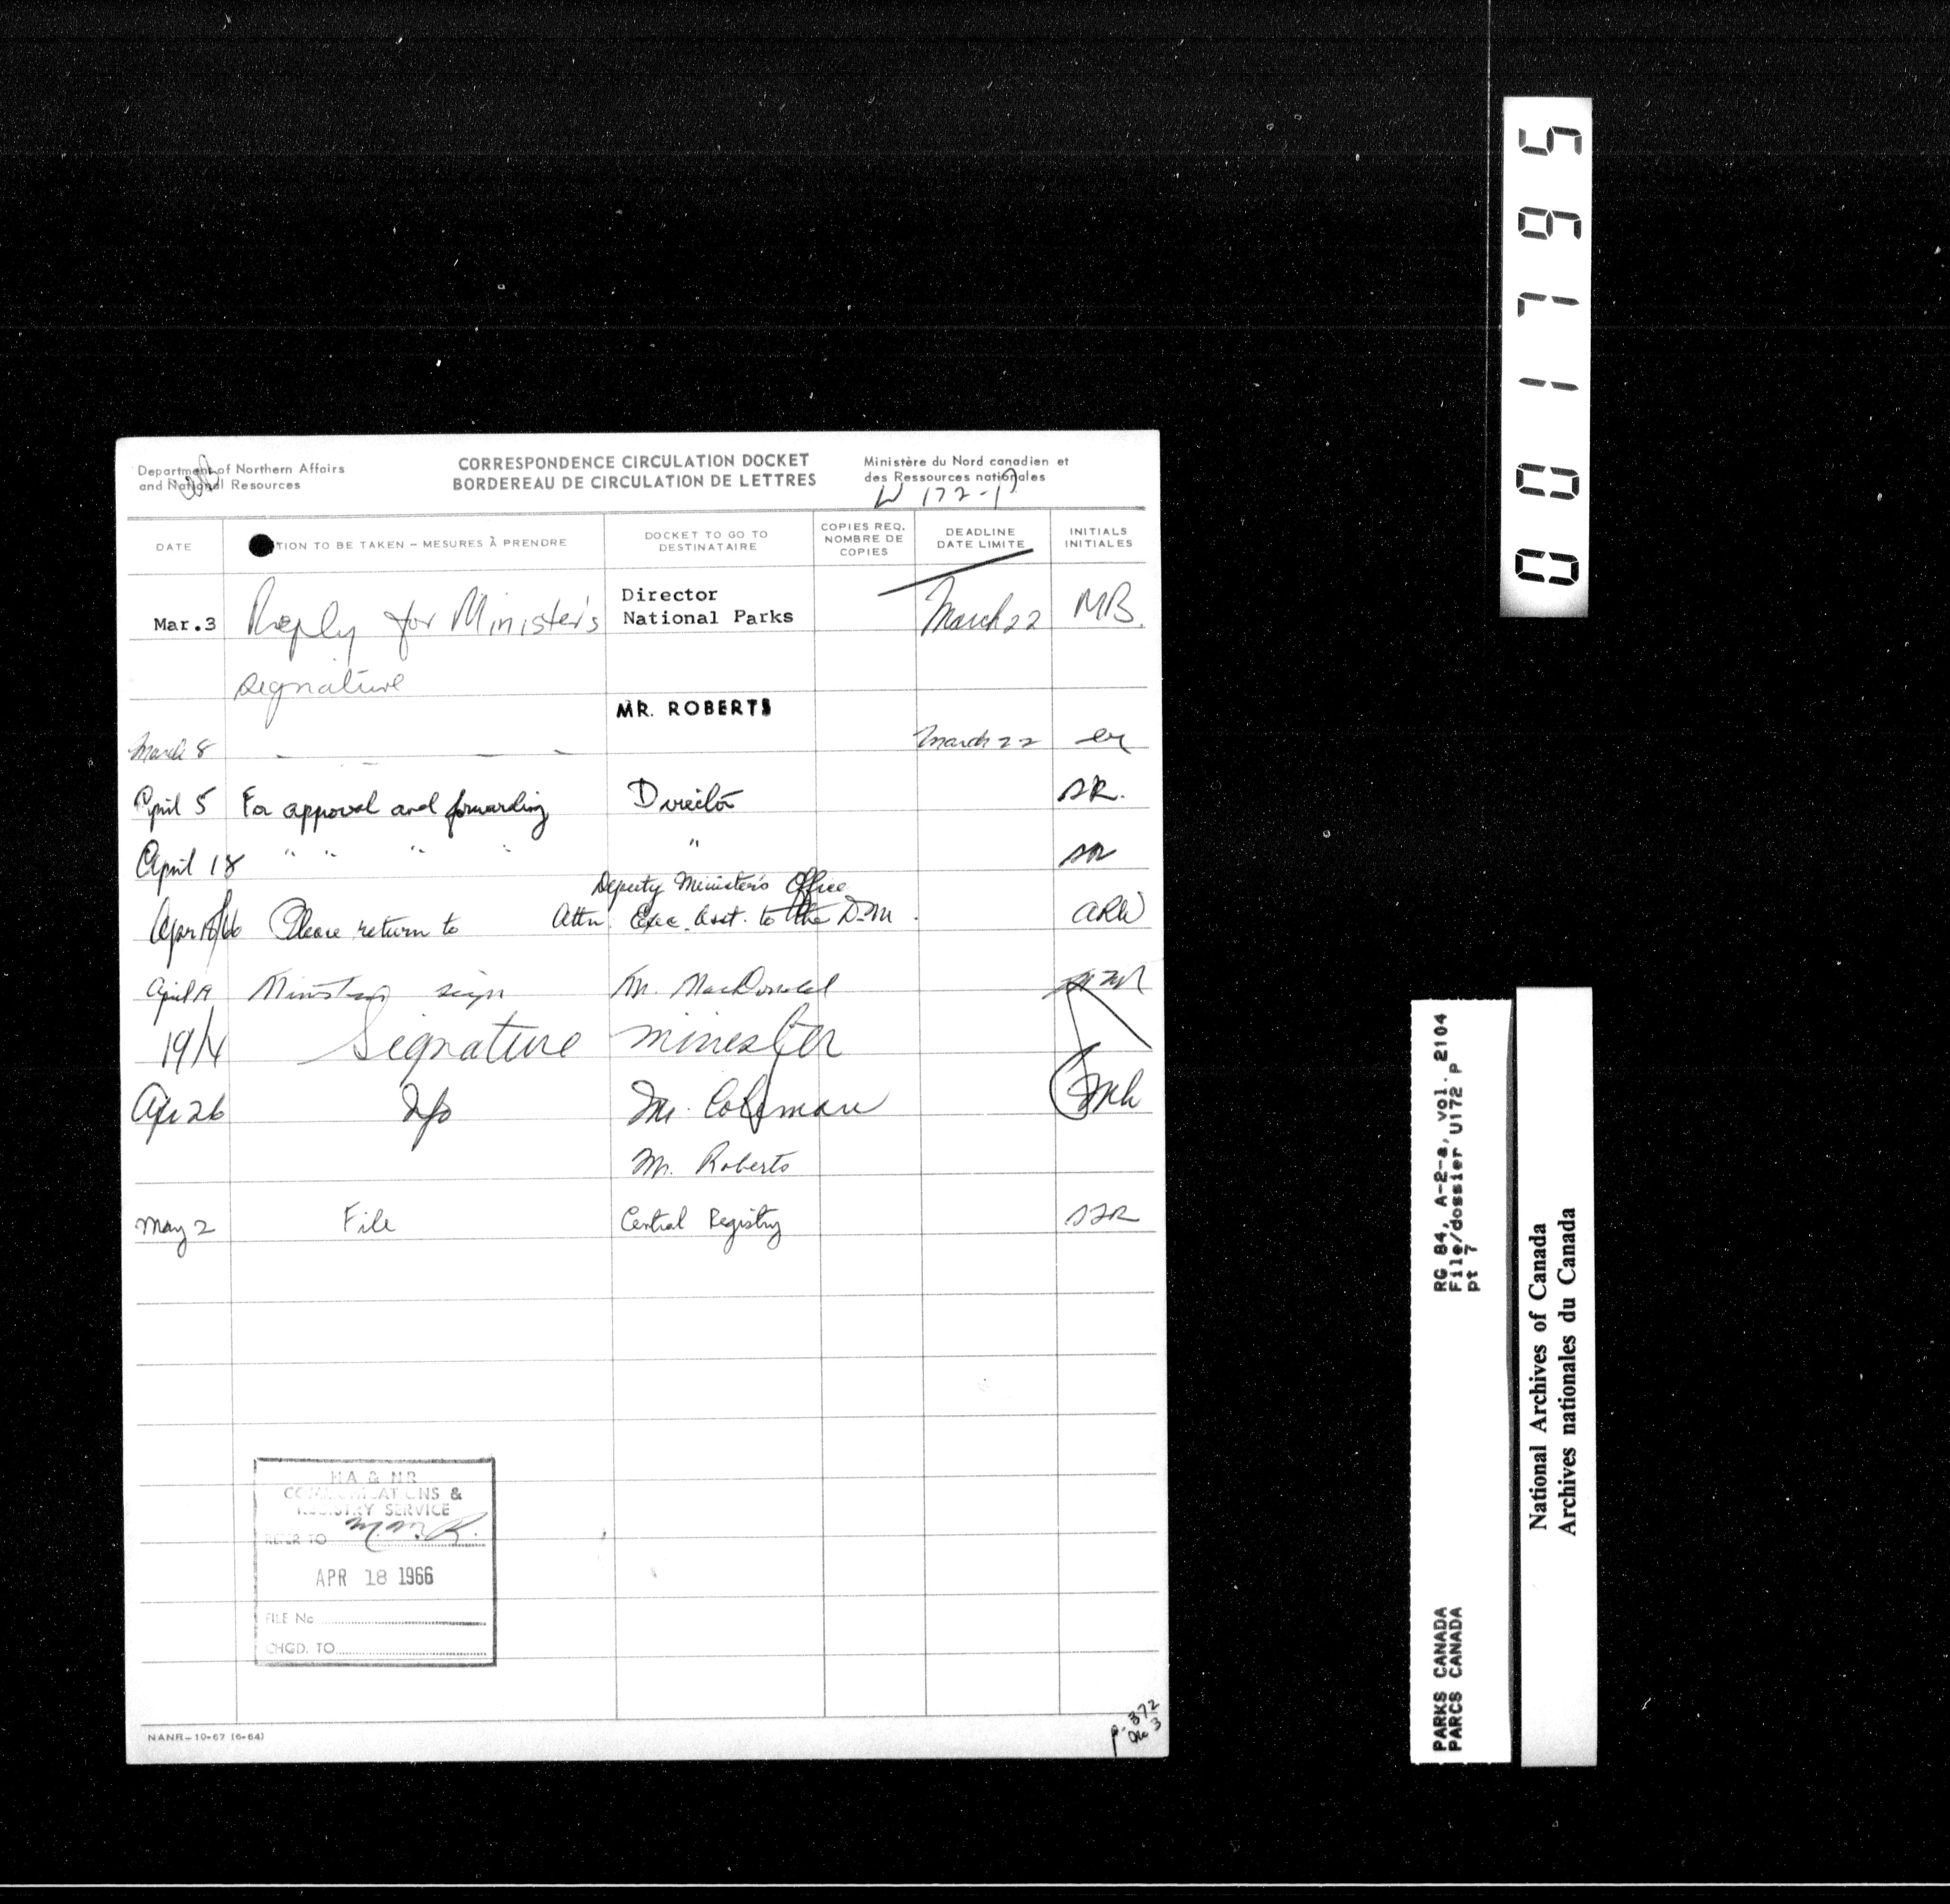 Department of Northern Affairs
and National Resources
CORRESPONDENCE CIRCULATION DOCKET
BORDEREAU DE CIRCULATION DE LETTRES
Ministère du Nord canadien et
des Ressources nationales
172-17
DATE
TION TO BE TAKEN – MESURES À PRENDRE
DOCKET TO GO TO
DESTINATAIRE
COPIES REQ.
NOMBRE DE
COPIES
DEADLINE
DATE LIMITE
INITIALS
INITIALES
Mar.3 Reply for Minister's Director March 22 MB.
National Parks
signature
MR. ROBERTS
March 8 March 22
April 5 For approval and forwarding Director SR.
April 18 " " " " "
Deputy Minister's Office
Apr 18/66 Please return to Attn. Exec. Asst. to the D.M. ARW
April 19 Minister's sign Mr. MacDonald
19/4 Signature minister
Apr 26 Info Mr. Coleman
Mr. Roberts
May 2 File Central Registry
NA & NR
COMMUNICATIONS &
REGISTRY SERVICE
REFER TO
APR 18 1966
FILE No
CHGD. TO
NANR-10-67 (6-64)
p. 372
001795
RG 84, A-2-a, vol. 2104
File/dossier U172 P
pt 7
PARKS CANADA
PARCS CANADA
National Archives of Canada
Archives nationales du Canada